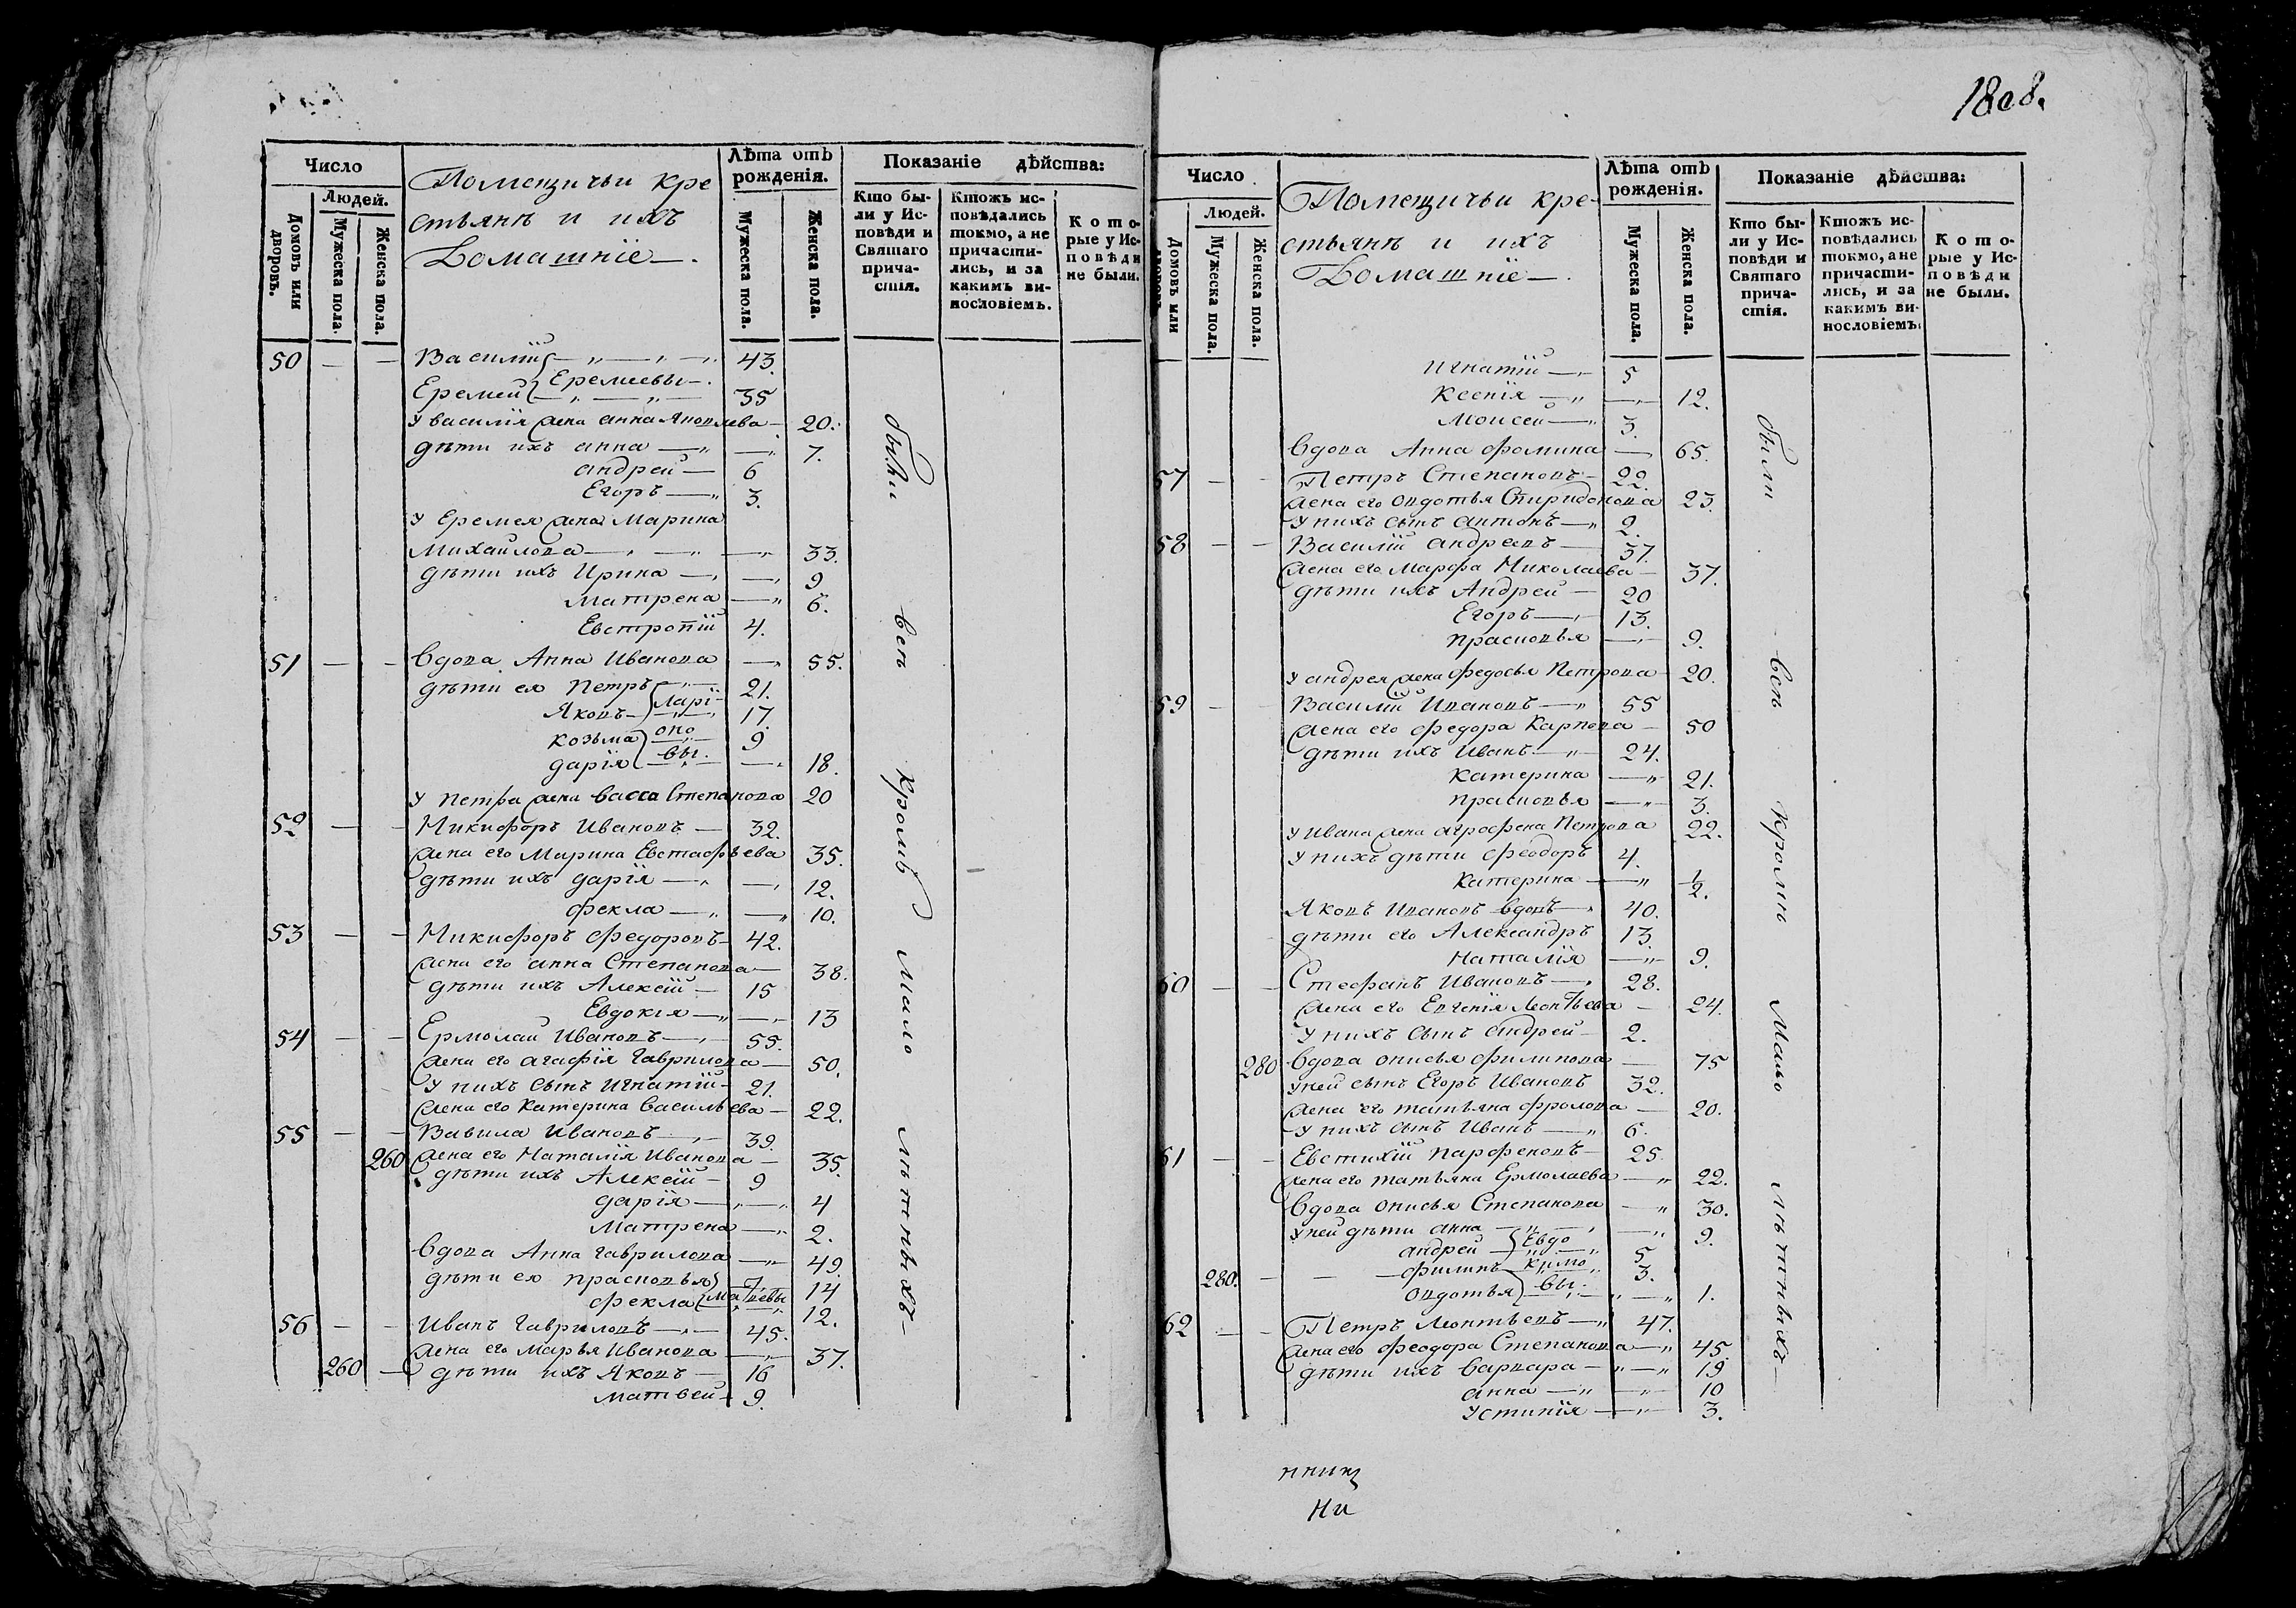 Число
Людей.
Домовъ или дворовъ.
Мужеска пола.
Женска пола.
Помещичьи кре
стьянѣ и ихъ
Домашніе
Лѣта отъ рожденія.
Мужеска пола.
Женска пола.
Показаніе дѣйства:
Кто были у Исповѣди и Святаго причастія.
Ктожъ исповѣдались токмо, а не причастились, и за какимъ винословіемъ.
Которые у Исповѣди не были.
50 — — Василій — — 43.
Еремей } Еремеевы — 35
У василія жена анна Яковлева 20.
дѣти ихъ анна — — 7.
андрей — 6
Егоръ — 3.
У Еремея жена Марина
Михайлова — — 33.
дѣти ихъ Ирина — — 9
Матрена — 6.
Евстропій 4.
51 — — вдова Анна Иванова — 55.
дѣти ея Петръ — 21.
Яковъ } Ларі 17.
козьма оно 9
дарія вы. — 18.
У петра жена васса Степанова 20
52 — — Никифоръ Ивановъ — 32.
жена его Марина Евстафьева 35.
дѣти ихъ дарія — — 12.
фекла — — 10.
53 — — Никифоръ федоровъ — 42.
жена его анна Степанова — 38.
дѣти ихъ Алексій — 15
Евдокія — — 13
54 — — Ермолай Ивановъ — 55.
жена его агафія гаврилова — 50.
У нихъ сынъ игнатій — 21.
жена его катерина васильева — 22.
55 — — Вавила Ивановъ — 39.
260 жена его Наталія Иванова — 35.
дѣти ихъ Алексій — 9
дарія — — 4
Матрена — 2.
вдова Анна гаврилова — 49.
дѣти ея прасковья — 14
фекла } матвевы 12.
56 — — Иванъ гавриловъ — 45.
жена его Марья иванова — 37.
260 — дѣти ихъ Яковъ — 16
матвей — 9.
были всѣ кромѣ мало лѣтнѣхъ —
1808.
Число
Людей.
Домовъ или
Мужеска пола.
Женска пола.
Помещичьи кре-
стьянѣ и ихъ
Домашніе —
Лѣта отъ рожденія.
Мужеска пола.
Женска пола.
Показаніе дѣйства:
Кто были у Исповѣди и Святаго причастія.
Ктожъ исповѣдались токмо, а не причастились, и за какимъ винословіемъ.
Которые у Исповѣди не были.
игнатій — 5
Ксенія — — 12.
Моисей — 3.
вдова Анна фомина — 65.
57 — — Петръ Степановъ — 22.
жена его овдотья Спиридонова 23.
У нихъ сынъ антонъ — 2.
58 — — Василій андреевъ — 37.
жена его марфа Николаева — 37.
дѣти ихъ Андрей — 20
Егоръ — 13.
прасковья — 9.
У андрея жена федосья Петрова 20.
59 — — Василій Ивановъ — 55
жена его федора карпова — 50
дѣти ихъ Иванъ — 24.
катерина — 21.
прасковья — 3.
У ивана жена аграфена Петрова 22.
У нихъ дѣти феодоръ 4.
катерина — 1/2.
Яковъ Ивановъ вдовъ — 40.
дѣти его Александръ 13.
Наталія — 9.
60 — — Стефанъ Ивановъ — 28.
жена его Евгенія Леонтьева — 24.
У нихъ сынъ андрей — 2.
280 вдова анисья филипова — 75
Уней сынъ Егоръ Ивановъ 32.
жена его татьяна фролова — 20.
У нихъ сынъ Иванъ — 6.
61 — — Евстихій парфеновъ — 25.
жена его татьяна Ермолаева — 22.
вдова онисья Степанова — 30.
Уней дѣти анна — — 9.
андрей } Евдо 5
280. — — филипъ кимо 3.
овдотья вы. — 1.
62 — — Петръ Леонтьевъ — 47.
жена его феодора Степанова — 45.
дѣти ихъ варвара — — 19
анна — — 10
Устинія — 3.
были всѣ кромѣ мало лѣтнѣхъ —
Ни